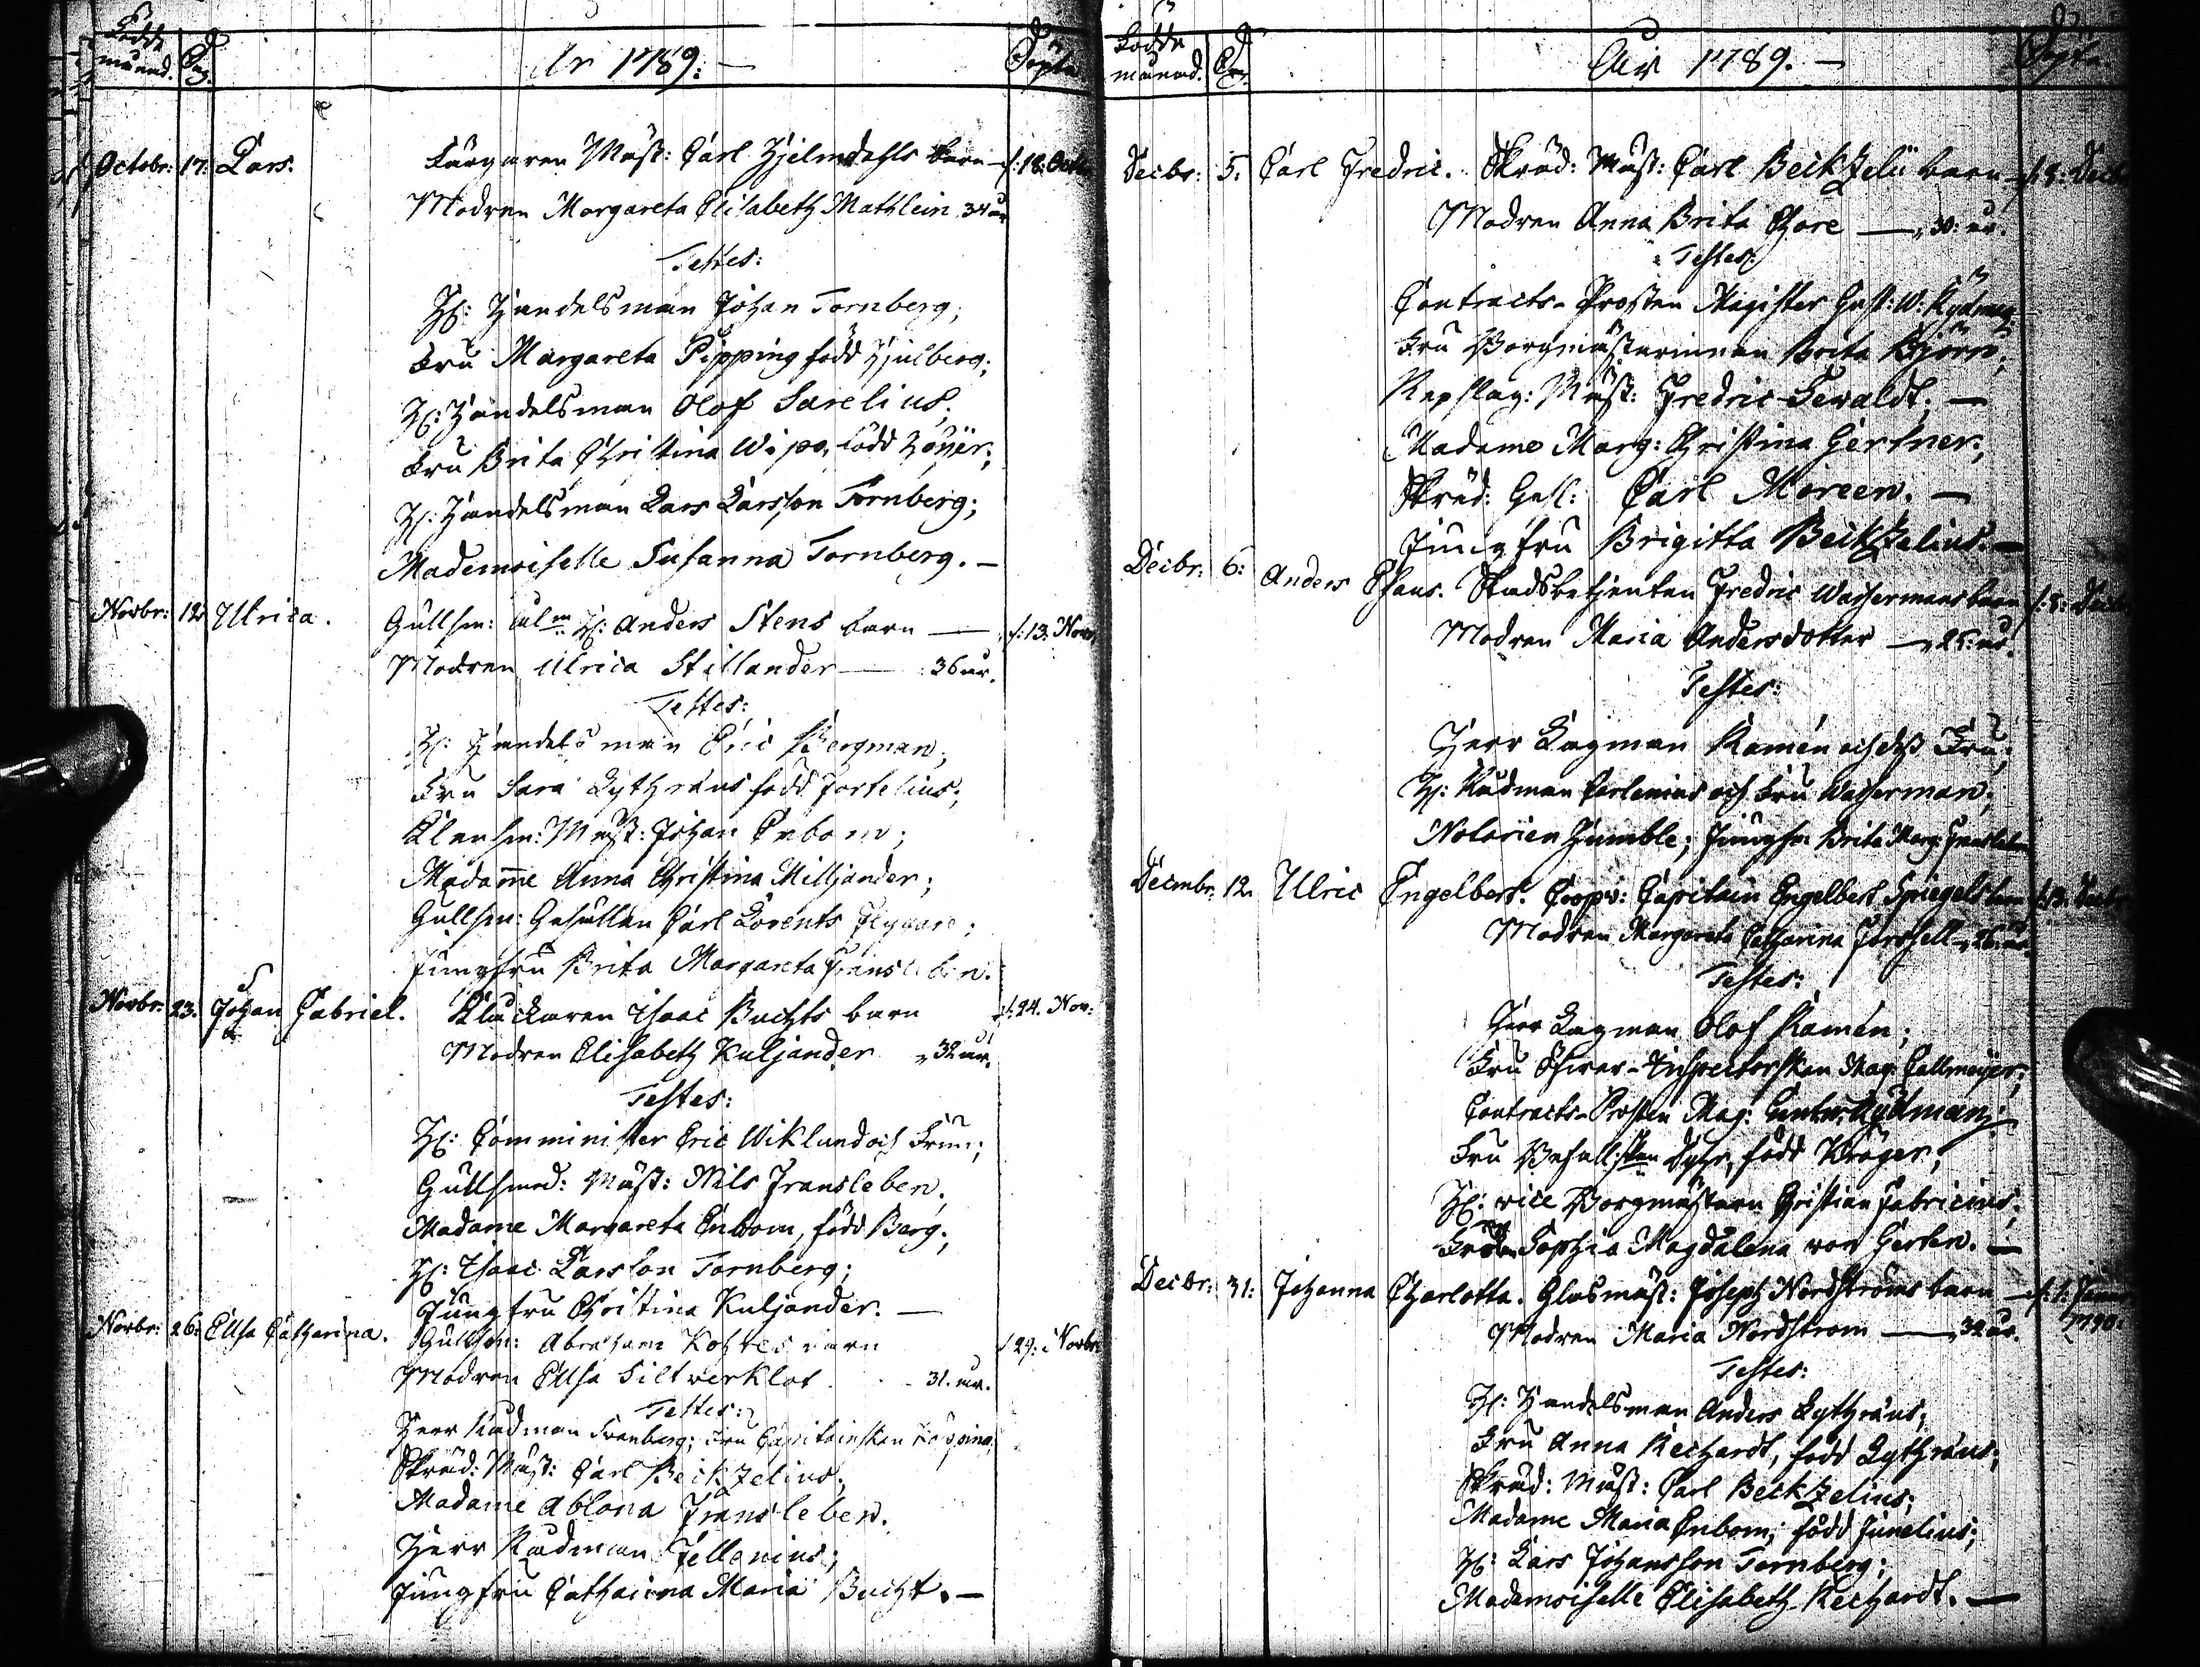 Födde månad. Dag.
År 1789:
Döpte
Octobr: 17: Lars. Färgaren Mäst: Carl Hjelmdahls barn d: 18: Octob
Modren Margareta Elisabeth Mathlein 34 år
Testes:
H: Handelsman Johan Tornberg;
Fru Margareta Pipping född Hjulberg;
H: Handelsman Olof Sarelius;
Fru Brita Christina född Höijer;
H: Handelsman Lars Larsson Tornberg;
Mademoiselle Susanna Tornberg. —
Novbr: 12 Ulrica. Gullsm: H: Anders Stens barn — d: 13. Nov
Modren Ulrica Stillander — 36 år.
Testes:
H: Handelsman Eric Bergman;
Fru Sara Lythræus född Fortelius;
Klensm: Mäst: Johan Enbom;
Madame Anna Christina Milljander;
Gullsm: Gesällen Carl Lorents
Jungfru Brita Margareta Fransleben.
Novbr: 23. Johan Gabriel. Klåckaren Isaac Buchts barn d: 24. Nov:
Modren Elisabeth Kuljander 32 år.
Testes:
H: Comminister Eric Wiklund och Frun;
Gullsmed: Mäst: Nils Fransleben;
Madame Margareta Enbom, född Berg;
H: Isaac Larsson Tornberg;
Jungfru Christina Kuljander. —
Novbr: 26: Ellsa Catharina. Gullsm: Abraham barn d 29: Novbr
Modren Ellsa Siltverklot 31. år.
Testes:
Herr Rådman Svanberg; Fru Capitainskan
Skräd: Mäst: Carl Beckzelius;
Madame Ablona Fransleben.
Herr Rådman
Jungfru Catharina Maria Bucht. —
Födde månad. Dag.
År 1789. —
Döpte.
Decbr: 5. Carl Fredric. Skräd: Mäst: Carl Beckzelii barn d. 8: Decbr
Modren Anna Brita Thore — 30: år.
Testes:
Contracts-Prosten Magister Gust: W: Rydman
Fru Borgmästarinnan Brita Björn;
Repslag: Mäst: Fredric Sewaldt; —
Madame Marg: Christina Gertner;
Skräd: Gesl: Carl Moreen. —
Jungfru Brigitta Beckzelius. —
Decbr: 6: Anders Stadsbetjenten Fredric Wassermans barn d: 8: Decbr
Modren Maria Andersdotter — 25: år.
Testes:
Herr Lagman Ramén och dess Fru;
H: Rådman Carlenius och Fru Wasserman;
Notarien Humble; Jungfru Brita Marg: Fransleben
Decmbr: 12. Ulric Engelbert. Coopv: Capitain Engelbert Spiegels barn d: 13. Decbr
Modren Margareta Catharina Forssell 26 år.
Testes:
Herr Lagman Olof Ramén;
Fru Inspectorskan Marg: Callmeijer;
Contracts-Prosten Mag: Rydman;
Fru född Kröger;
H: vice Borgmästarn Christian Fabricius;
Sophia Magdalena von Gerten. —
Decbr: 31: Johanna Charlotta. Glasmäst: Joseph Nordströms barn — d: 1. Januari 1790.
Modren Maria Nordstrom — 32 år.
Testes:
H: Handelsman Anders Lythræus;
Fru Anna Rechardt, född Lythræus;
Skräd: Mäst: Carl Beckzelius;
Madame Maria Enbom; född Junelius;
H: Lars Johansson Tornberg;
Mademoiselle Elisabeth Rechardt. —